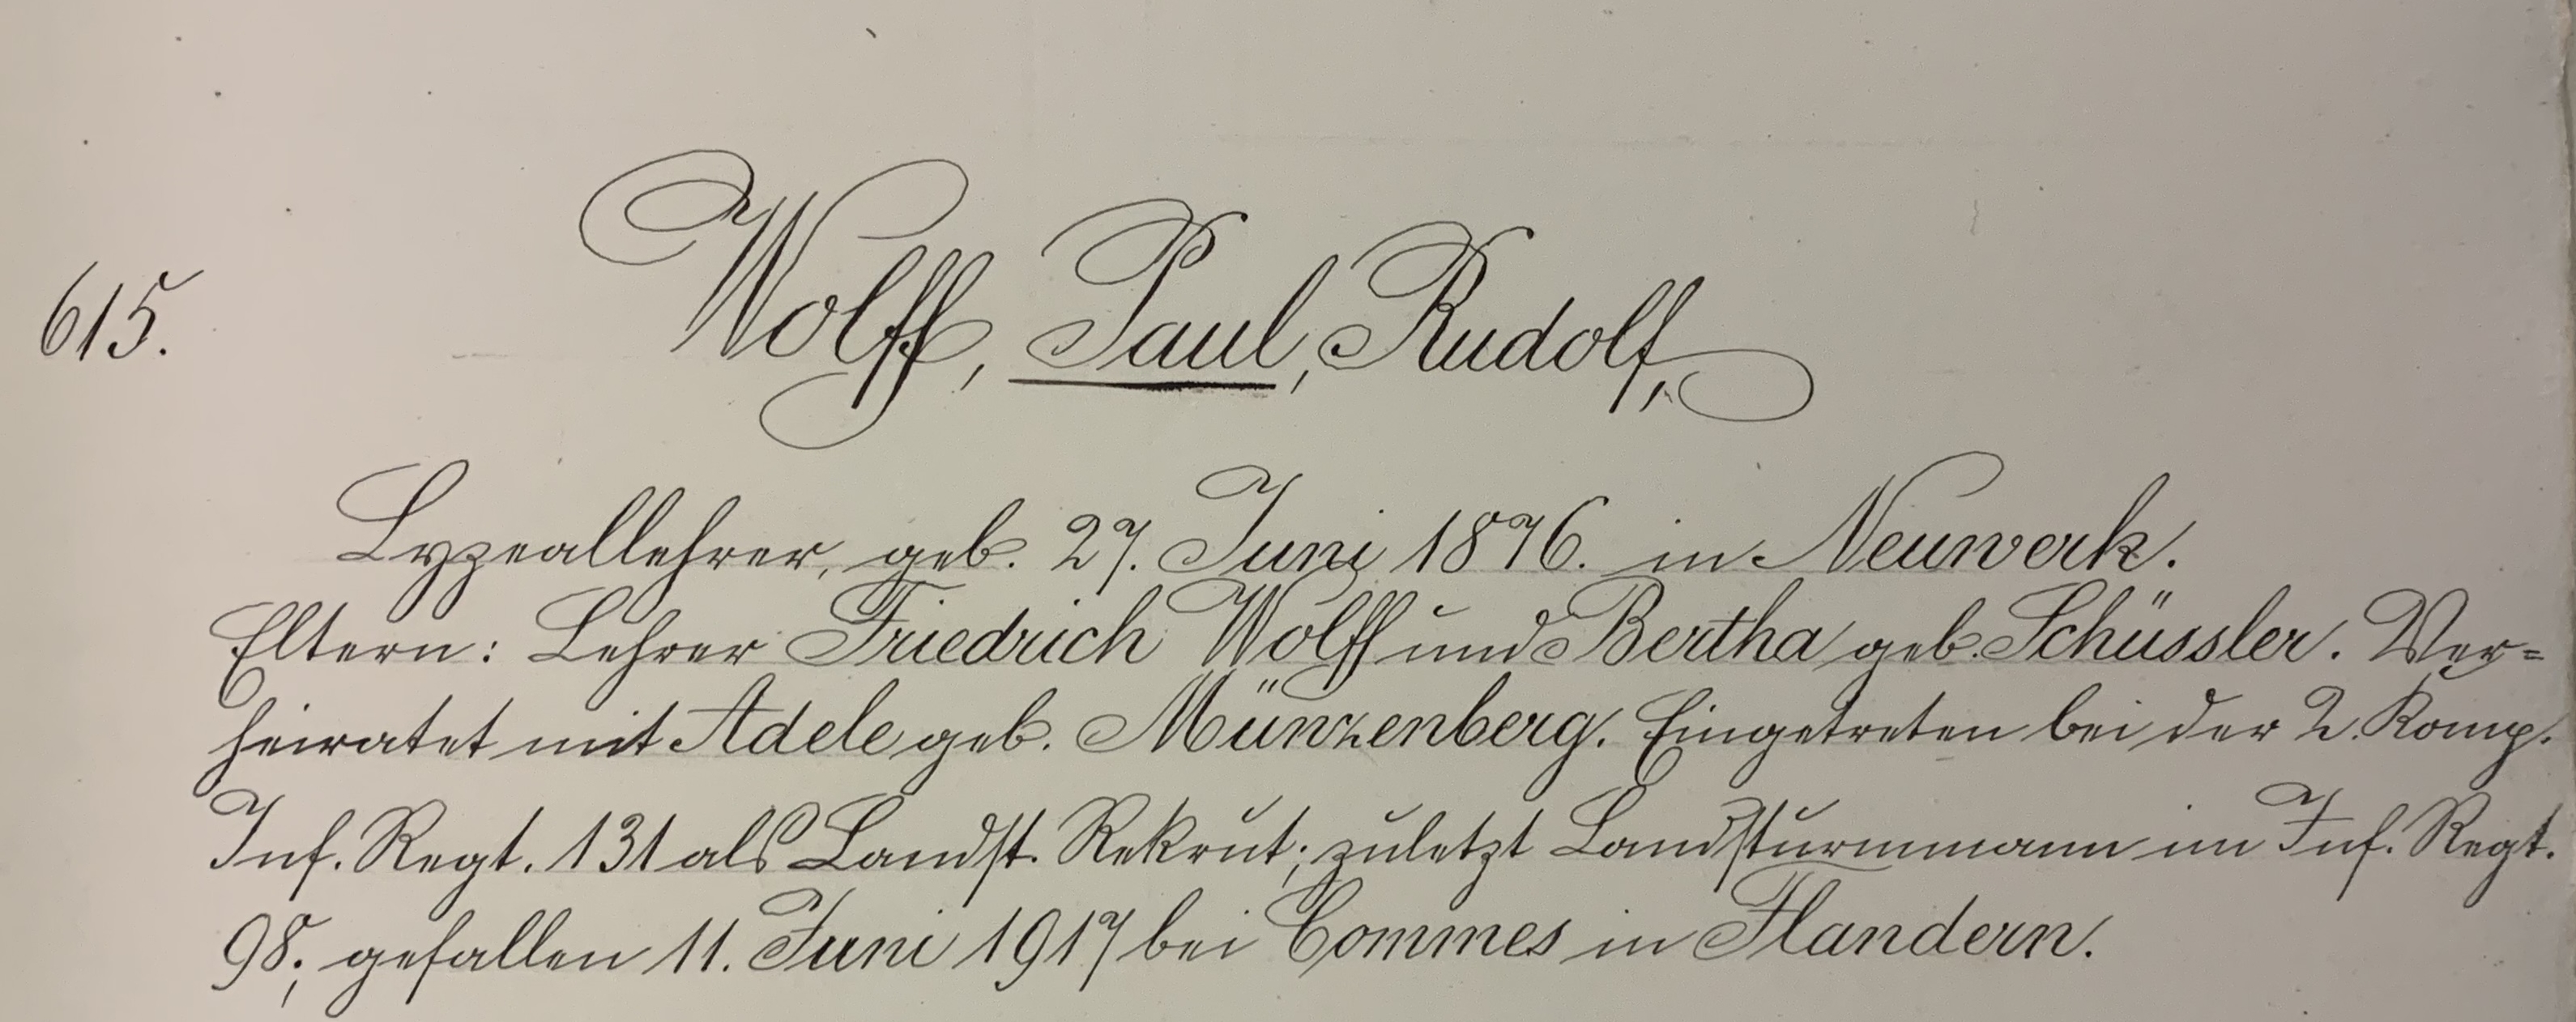 615.
Wolff, Paul, Rudolf,
Lyzeallehrer, geb. 27. Juni 1876. in Neuwerk.
Eltern: Lehrer Friedrich Wolff und Bertha geb. Schüssler. Ver=
heiratet mit Adele geb. Münzenberg. Eingetreten bei der 2. Komp.
Inf. Regt. 131 als Landst. Rekrut; zuletzt Landsturmmann im Inf. Regt.
98; gefallen 11. Juni 1917 bei Commes in Flandern.